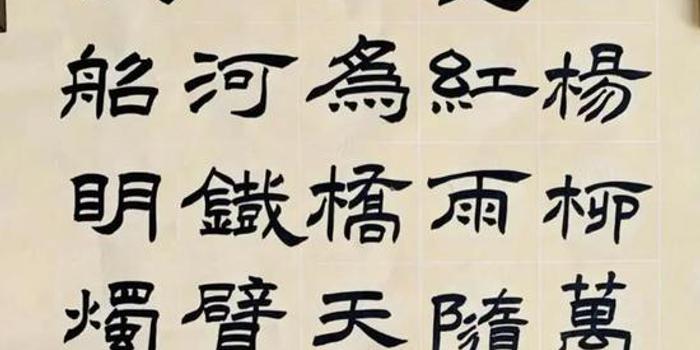 楊柳萬
紅雨隨
爲橋天
河鐵臂
船明燭